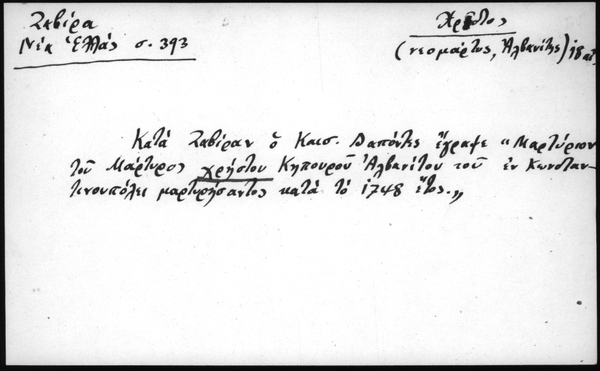 Ζαβίρα
Νέα Ἑλλάς σ. 393
Χρῆστος
(νεομάρτυς, Ἀλβανίτης) 18 αἰ.
Κατά Ζαβίραν ὁ Καισ. Δαπόντες ἔγραψε "Μαρτύριον
τοῦ Μάρτυρος χρήστου Κηπουροῦ Ἀλβανίτου τοῦ ἐν Κωνσταν-
τινουπόλει μαρτυρήσαντος κατά τό 1748 ἔτος.„